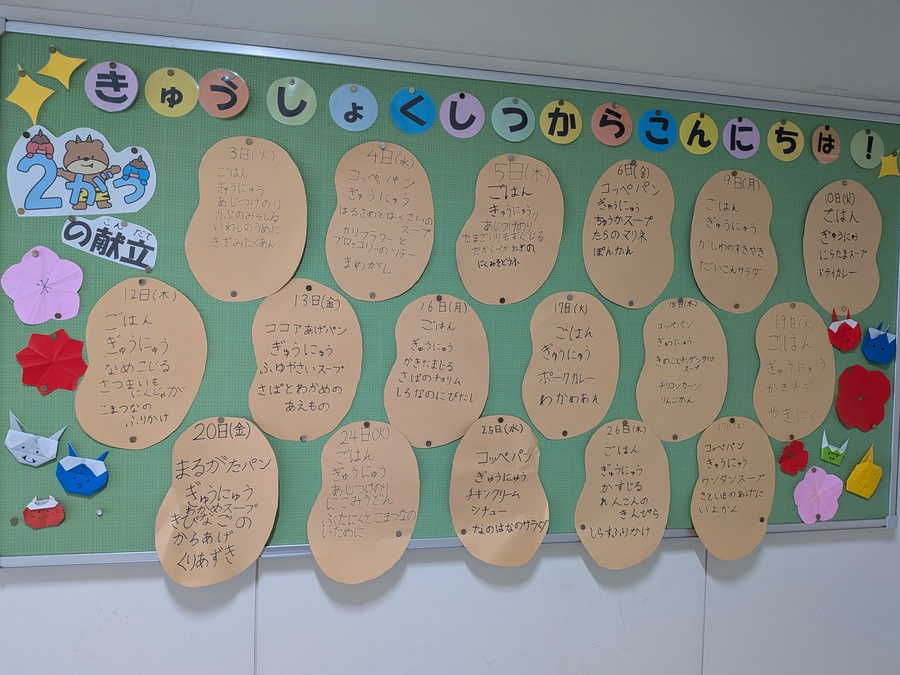 きゅうしょくしつからこんにちは!
2がつ
こんだて
の献立
3日(火)
ごはん
ぎゅうにゅう
あじつけのり
かぶのみそしる
いわしのうめに
きざみたくあん
4日(水)
コッペパン
ぎゅうにゅう
はるさめとはくさいの
スープ
カリフラワーと
ブロッコリーのソテー
まめがし
5日(木)
ごはん
ぎゅうにゅう
あじつけのり
たまごいりもずくじる
たがらづかねぎの
にくみそどうふ
6日(金)
コッペパン
ぎゅうにゅう
ちゅうかスープ
たらのマリネ
ぽんかん
9日(月)
ごはん
ぎゅうにゅう
かしわのすきやき
だいこんサラダ
10日(火)
ごはん
ぎゅうにゅう
にらたまスープ
ドライカレー
12日(木)
ごはん
ぎゅうにゅう
なめこじる
さつまいも
にくじゃが
こまつなの
ふりかけ
13日(金)
ココアあげパン
ぎゅうにゅう
ふゆやさいスープ
さばとわかめの
あえもの
16日(月)
ごはん
ぎゅうにゅう
かきたまじる
さばのチョリム
しろなのにびたし
17日(火)
ごはん
ぎゅうにゅう
ポークカレー
わかめあえ
18日(水)
コッペパン
ぎゅうにゅう
きのことチンゲンサイの
スープ
チリコンカーン
りんごかん
19日(木)
ごはん
ぎゅうにゅう
かきチゲ
やきにく
20日(金)
まるがたパン
ぎゅうにゅう
わかめスープ
きびなごの
からあげ
くりあずき
24日(火)
ごはん
ぎゅうにゅう
あじつけのり
にこみうどん
ぶたにくとこまつなの
いために
25日(水)
コッペパン
ぎゅうにゅう
チキンクリーム
シチュー
なのはなのサラダ
26日(木)
ごはん
ぎゅうにゅう
かすじる
れんこんの
きんぴら
しらすふりかけ
27日(金)
コッペパン
ぎゅうにゅう
ワンタンスープ
さといものあげに
いよかん